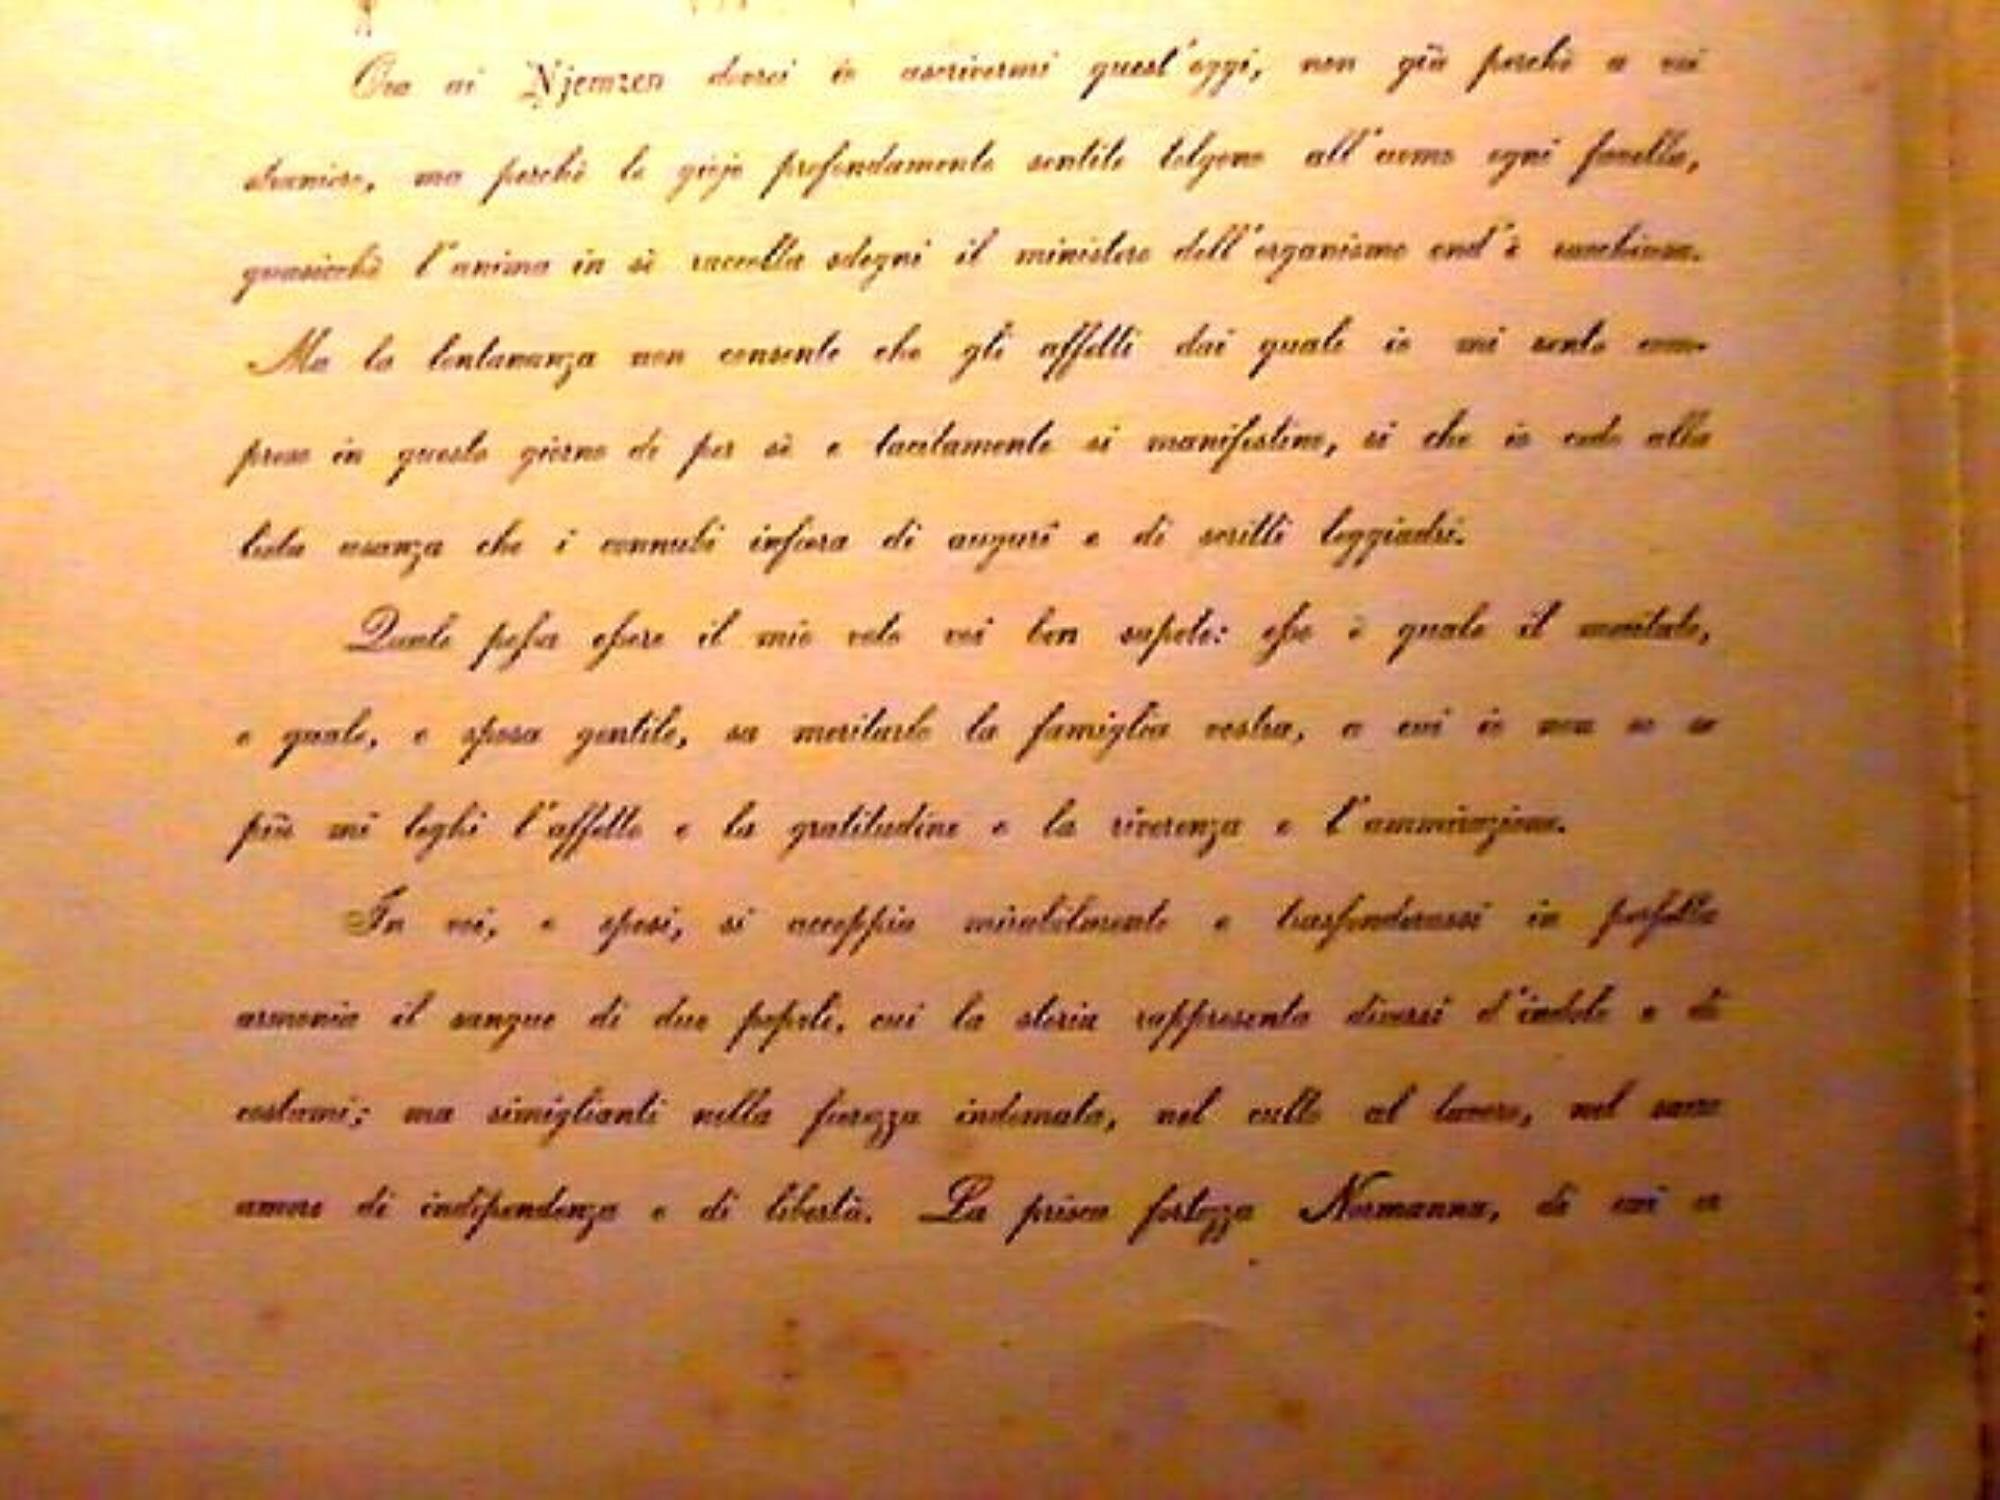 Ora ai Njemzen dovrei io ascrivermi quest'oggi, non già perchè a voi
straniero, ma perchè le gioje profondamente sentite tolgono all'uomo ogni favella,
quasicchè l'anima in sè raccolta sdegni il ministero dell'organismo ond'è racchiusa.
Ma la lontananza non consente che gli affetti dai quali io mi sento com-
preso in questo giorno di per sè e tacitamente si manifestino, sì che io cedo alla
lieta usanza che i connubi infiora di augurî e di scritti leggiadri.
Quale possa essere il mio voto voi ben sapete: esso è quale il meritate,
e quale, o sposa gentile, sa meritarlo la famiglia vostra, a cui io non so se
più mi leghi l'affetto o la gratitudine o la riverenza o l'ammirazione.
In voi, o sposi, si accoppia mirabilmente e trasfonderassi in perfetta
armonia il sangue di due popoli, cui la storia rappresenta diversi d'indole e di
costumi; ma simiglianti nella fierezza indomata, nel culto al lavoro, nel sacro
amore di indipendenza e di libertà. La prisca fortezza Normanna, di cui a